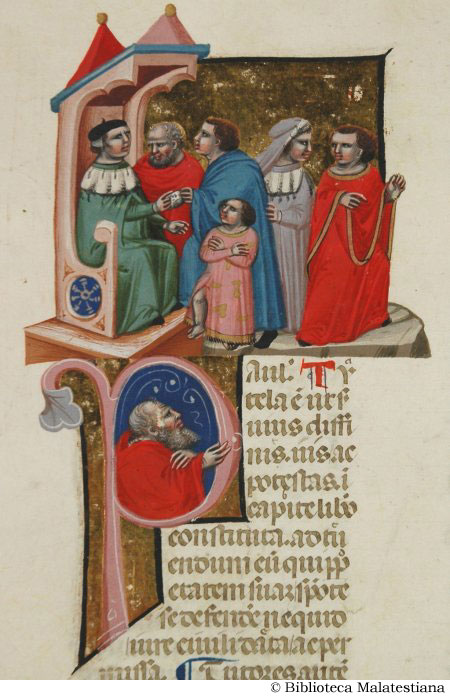 Paulꝰ Tu
tela ē ut s͛
uius diffi
nis. ius ac
potestas. ī
capite liƀo
constituta. ad tu
endum eū qui ꝓp̄
etatem suaꝫ spōte
se defendē nequid
iure ciuili data ac per
missa. Tutores autē
© Biblioteca Malatestiana